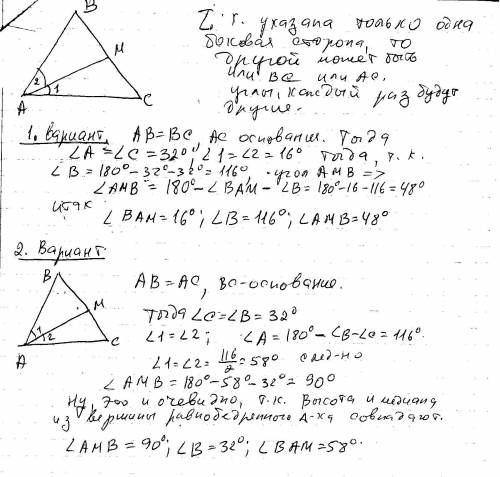 B
M
2
1
A
C
Т.к. указана только одна
боковая сторона, то
другой может быть
или BC или AC.
углы, каждый раз будут
другие.
1. Вариант. AB=BC, AC основание. Тогда
∠A=∠C=32°, ∠1=∠2=16° Тогда, т.к.
∠B=180°-32°-32°=116°, угол AMB =>
∠AMB=180°-∠BAM-∠B=180°-16-116=48°
итак
∠BAM=16°; ∠B=116°; ∠AMB=48°
2. Вариант
B
M
1
2
A
C
AB=AC, BC-основание.
Тогда ∠C=∠B=32°
∠1=∠2; ∠A=180°-∠B-∠C=116°
∠1=∠2=116/2=58° след-но
∠AMB=180°-58°-32°=90°
Ну, это и очевидно, т.к. высота и медиана
из вершины равнобедренного Δ-ка совпадают.
∠AMB=90°; ∠B=32°; ∠BAM=58°.